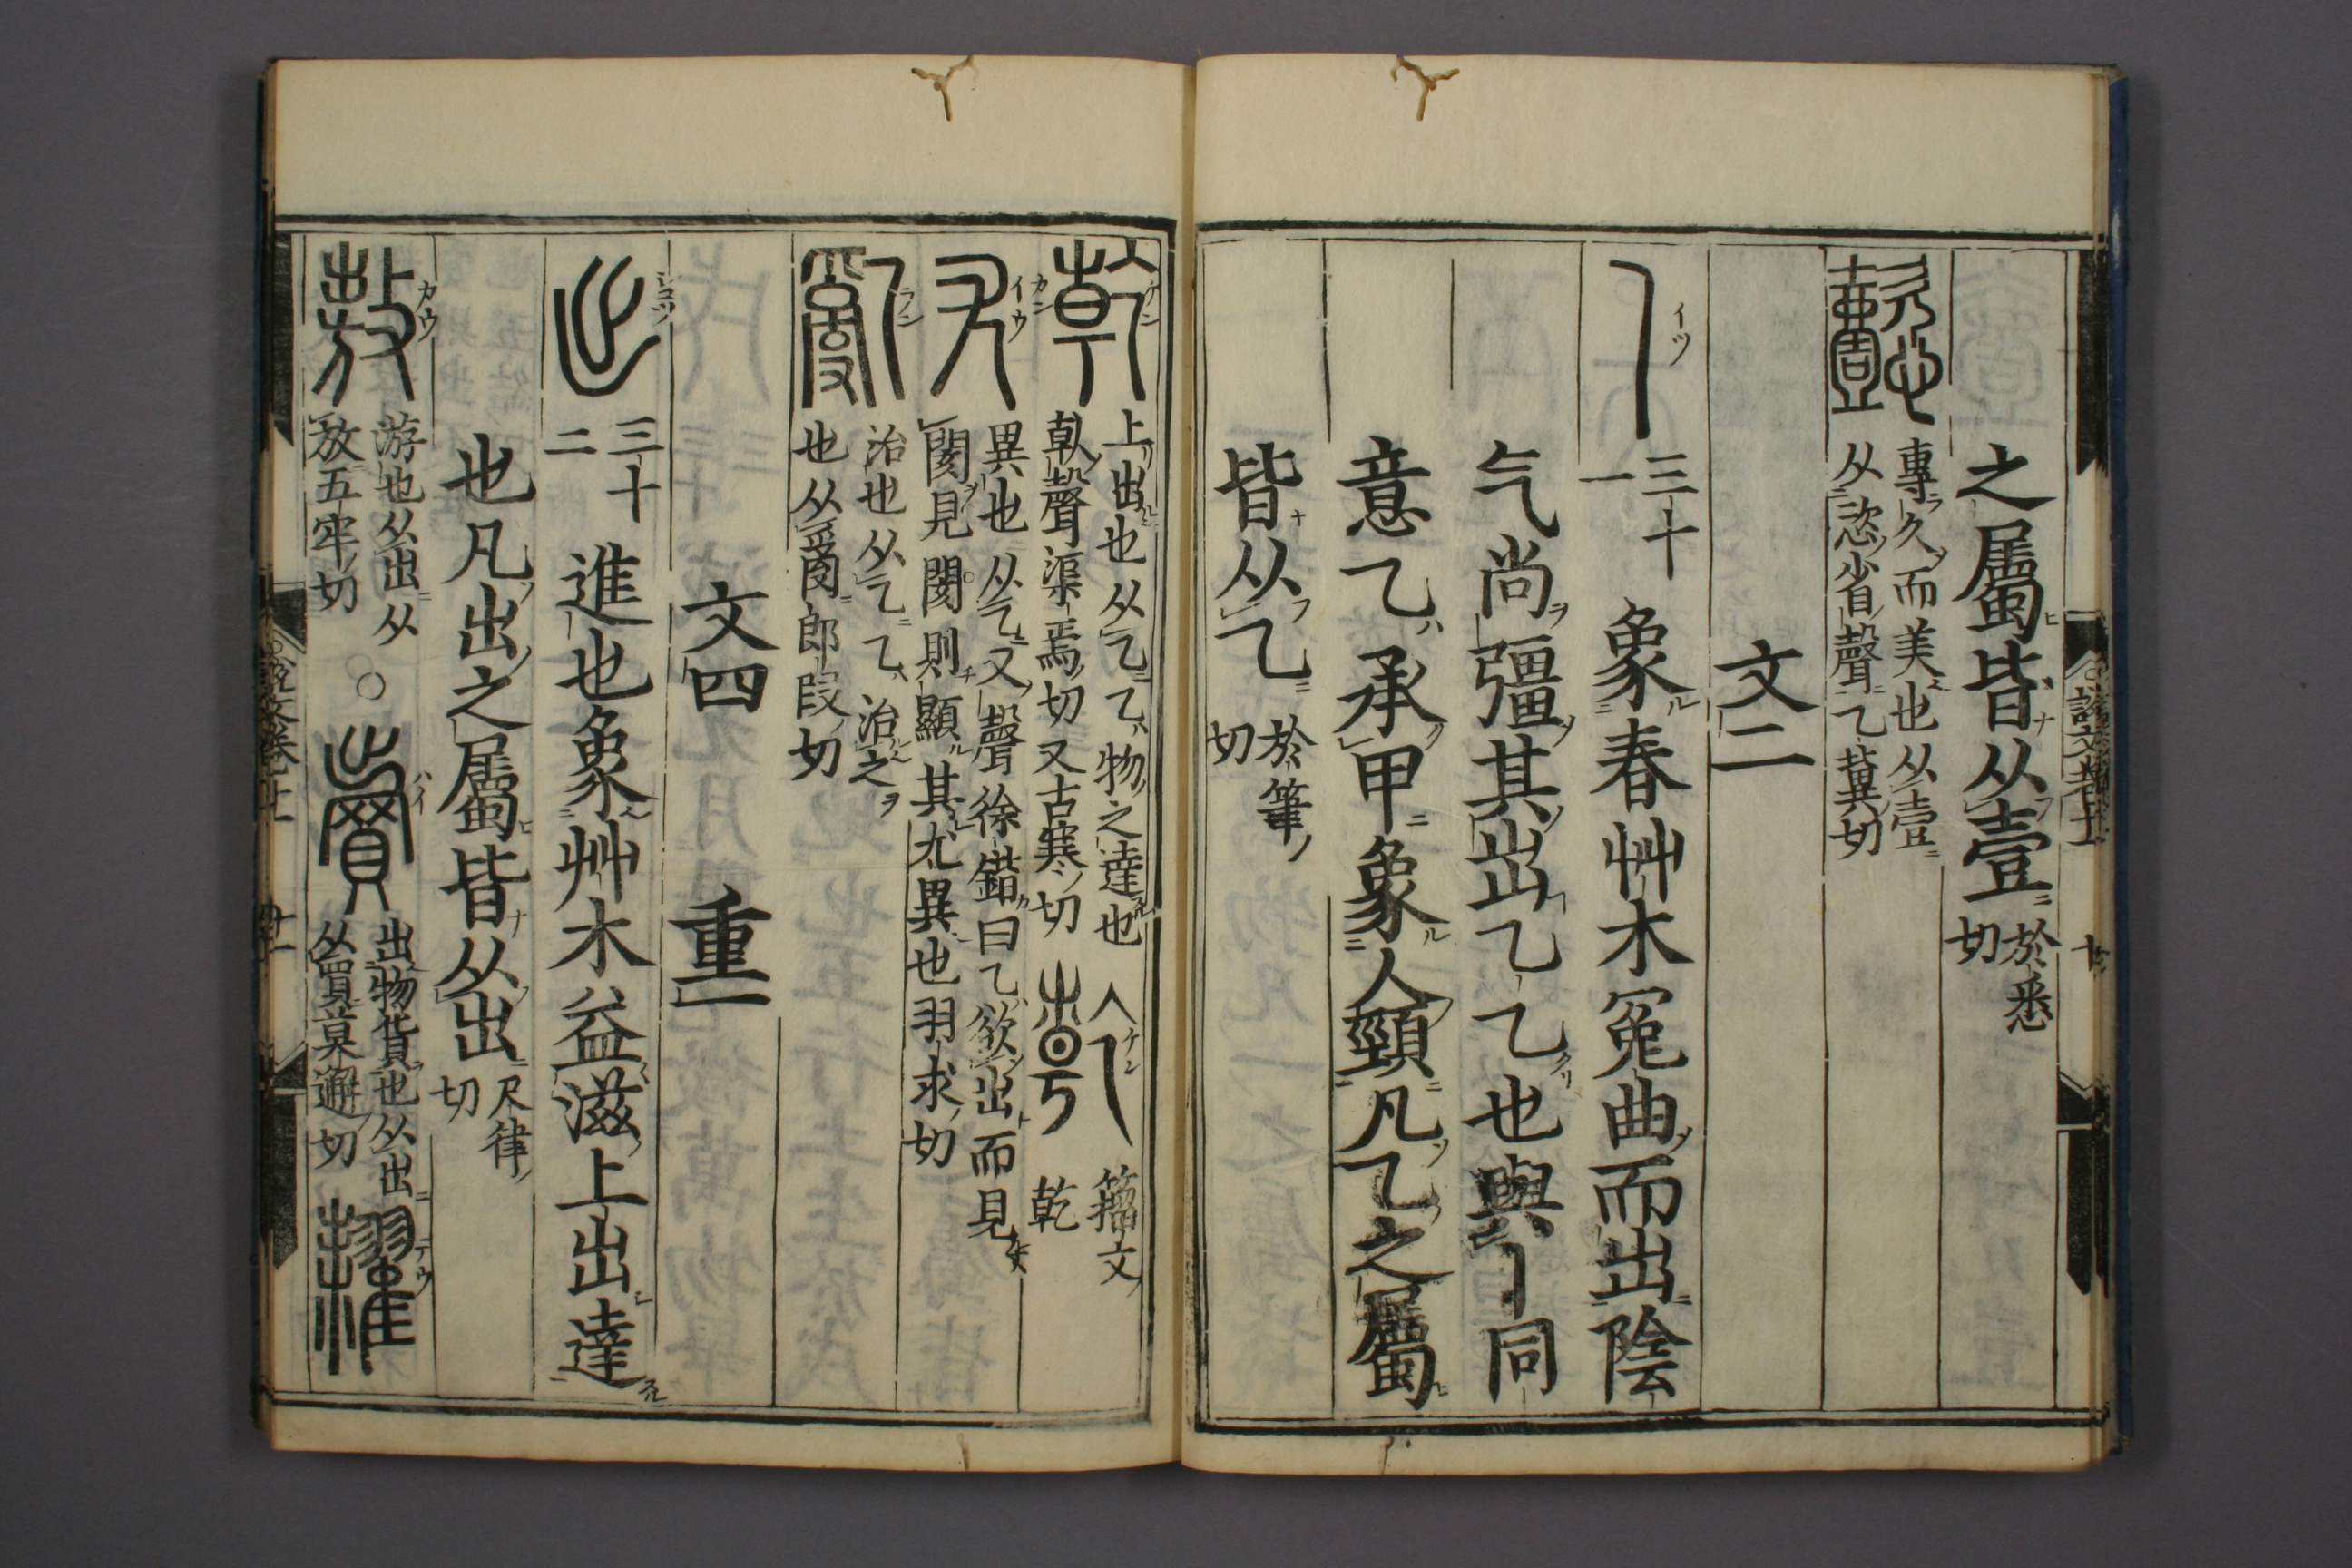 之屬皆从壹 於悉切
懿 專久而美也从壹
从恣省聲乙冀切
文二
乙 三十一 象春艸木冤曲而出陰
气尚彊其出乙乙也與丨同
意乙承甲象人頸凡乙之屬
皆从乙 於筆切
乾 上出也从乙乙物之達也
倝聲渠焉切又古寒切 籀文乾
尤 異也从乙又聲徐鍇曰乙欲出而見
閡見閡則顯其尤異也羽求切
亂 治也从乙乙治之
也从𤔔郎段切
文四 重一
出 三十二 進也象艸木益滋上出達
也凡出之屬皆从出 尺律切
敖 游也从出从放五牢切 ○ 賣 出物貨也从出从買莫邂切 糶
說文卷十二